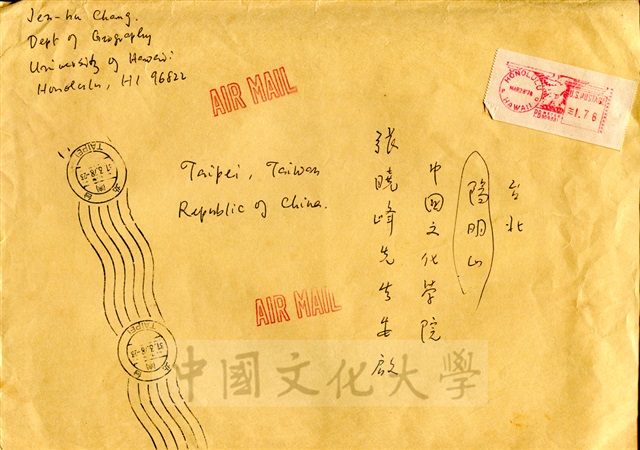 Jen-hu Chang.
Dept of Geography
University of Hawaii
Honolulu, HI 96822
AIR MAIL
HONOLULU
HAWAII
U.S. POSTAGE
1.76
TAIPEI
Taipei, Taiwan
Republic of China.
台北
陽明山
中國文化學院
張曉峰先生安啟
AIR MAIL
TAIPEI
中國文化大學